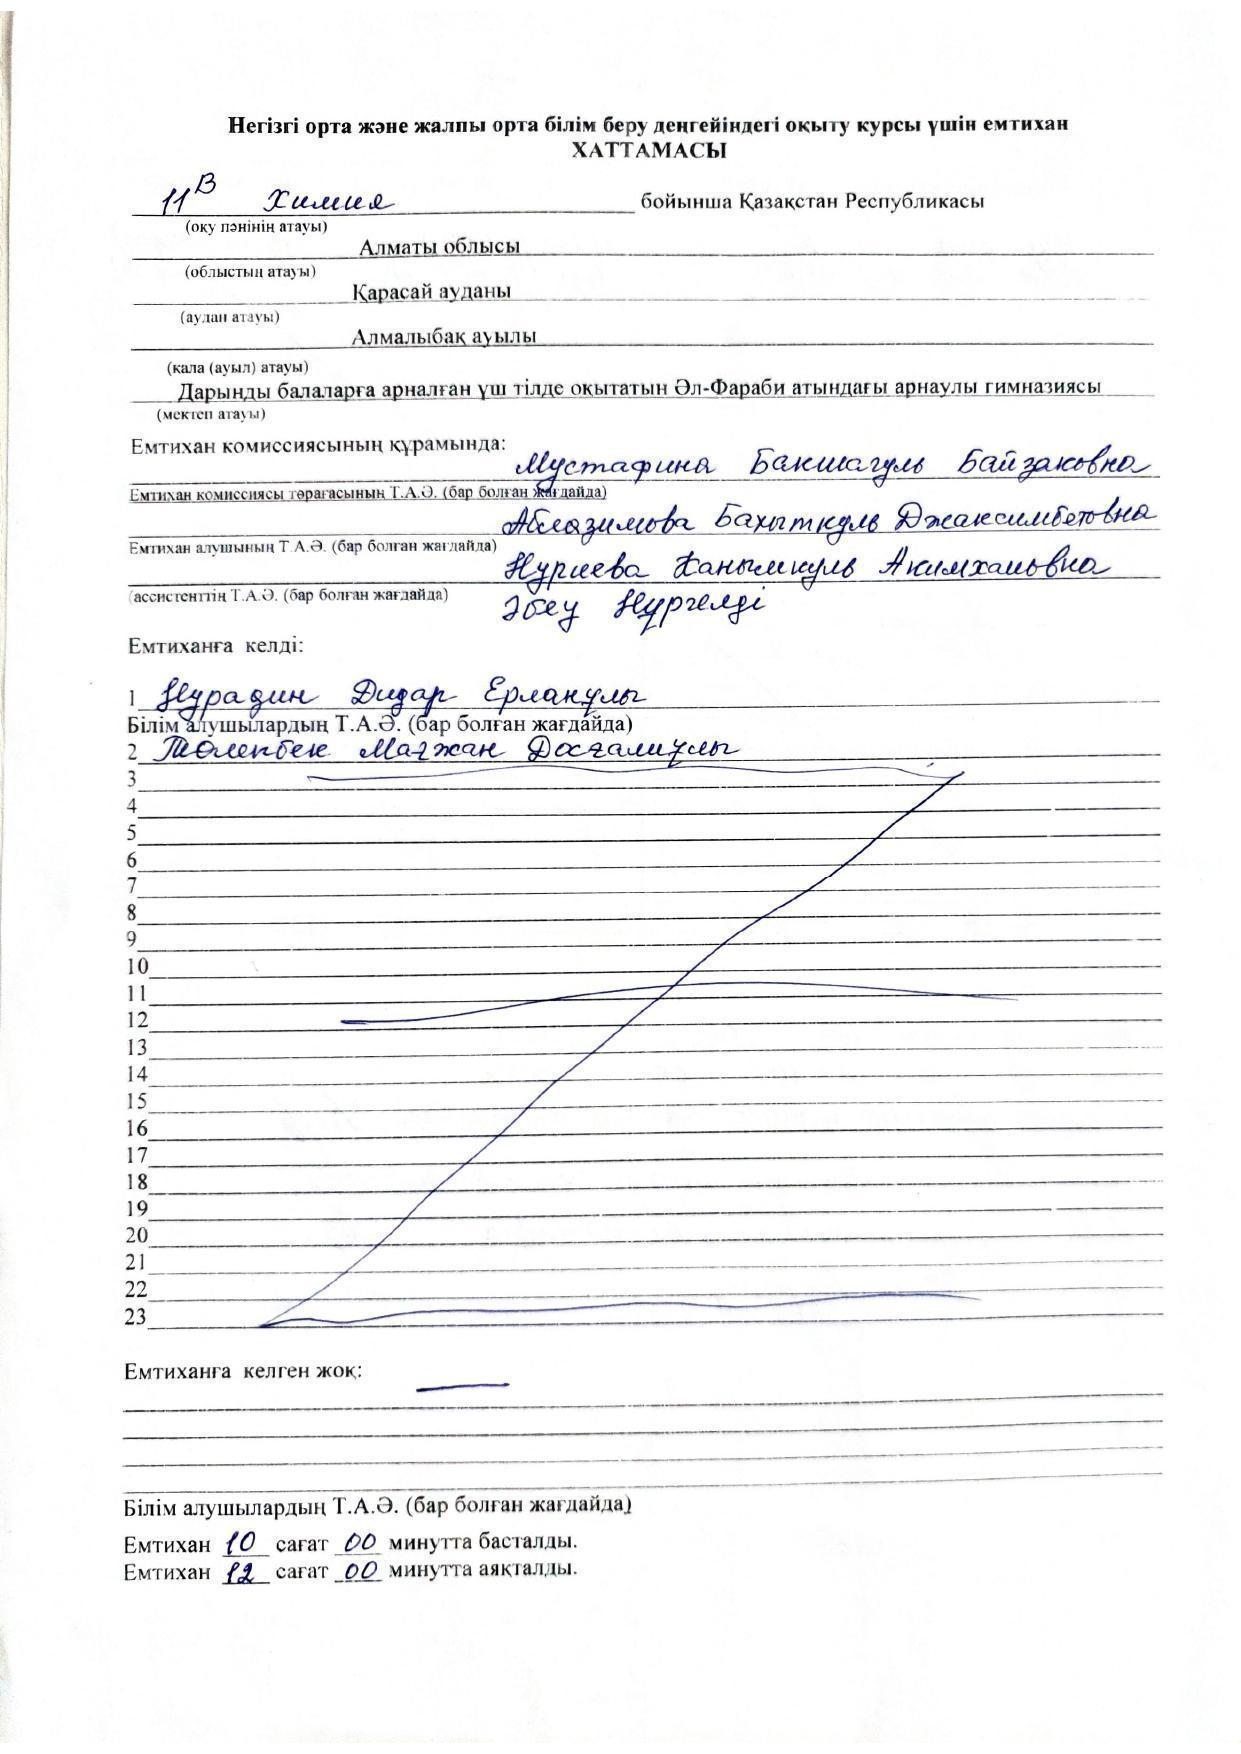 Негізгі орта және жалпы орта білім беру деңгейіндегі оқыту курсы үшін емтихан
ХАТТАМАСЫ
11В Химия бойынша Қазақстан Республикасы
(оқу пәнінің атауы)
Алматы облысы
(облыстың атауы)
Қарасай ауданы
(аудан атауы)
Алмалыбақ ауылы
(қала (ауыл) атауы)
Дарынды балаларға арналған үш тілде оқытатын Әл-Фараби атындағы арнаулы гимназиясы
(мектеп атауы)
Емтихан комиссиясының құрамында:
Мустафина Бакшагуль Байзаковна
Емтихан комиссиясы төрағасының Т.А.Ә. (бар болған жағдайда)
Аблазимова Бахыткуль Джаксимбетовна
Емтихан алушының Т.А.Ә. (бар болған жағдайда)
Нуриева Ханымкуль Акимхановна
(ассистенттің Т.А.Ә. (бар болған жағдайда)
Әбеу Нұргелді
Емтиханға келді:
1 Нурадин Дидар Ерланұлы
Білім алушылардың Т.А.Ә. (бар болған жағдайда)
2 Төлепбек Мағжан Досғалиұлы
3
4
5
6
7
8
9
10
11
12
13
14
15
16
17
18
19
20
21
22
23
Емтиханға келген жоқ:
Білім алушылардың Т.А.Ә. (бар болған жағдайда)
Емтихан 10 сағат 00 минутта басталды.
Емтихан 12 сағат 00 минутта аяқталды.